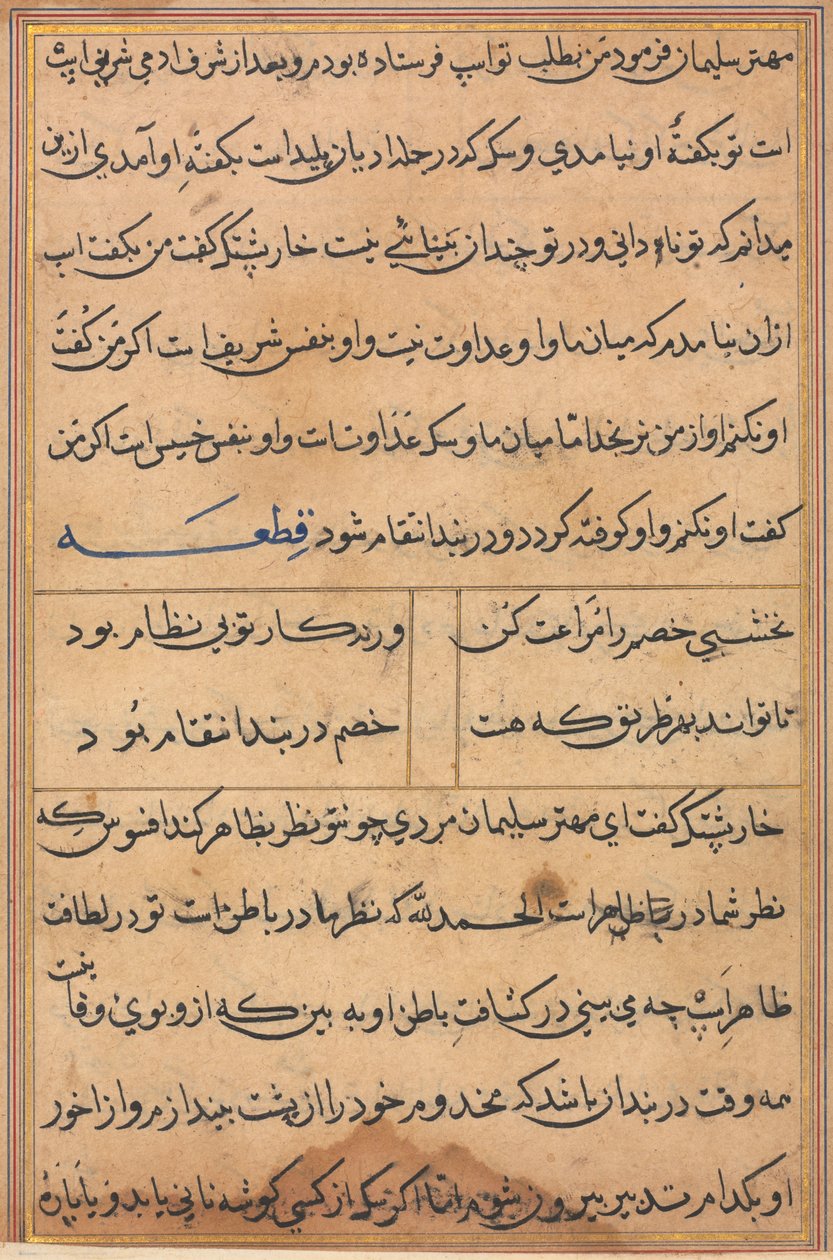 مهتر سلیمان فرمود من بطلب تو اسپ فرستاده بودم و بعد از شرف ادمی شریفی اسپ
است تو بکفتهٔ او نیامدی و سک که در جمله ادیان پلید است بکفتهٔ او آمدی ازین
میدانم که تو نادانی و در تو چندان بینائی نیست خارپشتک کفت من بکفت اسپ
ازان نیامدم که میان ما و او عداوت نیست و او بنفس شریف است اکر من کفت
او نکنم او از من نرنجد امّا میان ما و سک عداوت است و او بنفس خسیس است اکر من
کفت او نکنم و او کوفته کردد و در بند انتقام شود قطعه
نخشبی خصم را مراعت کن
ورنه کار تو بی نظام بود
تا تواند بهر طریق که هست
خصم در بند انتقام بود
خارپشتک کفت ای مهتر سلیمان مردی چو تو نظر بظاهر کند افسوس که
نظر شما در ظاهر است الحمد لله که نظر ما در باطن است تو در لطافت
ظاهر اسپ چه می بینی در کثافت باطن او به بین که ازو بوی وفا نیست
همه وقت در بند ان باشد که مخدوم خود را از پشت بیندازم و از اخور
او بکدام تدبیر بیرون شوم امّا اکر سک از کسی کوشه نانی یابد و یا پارهٔ